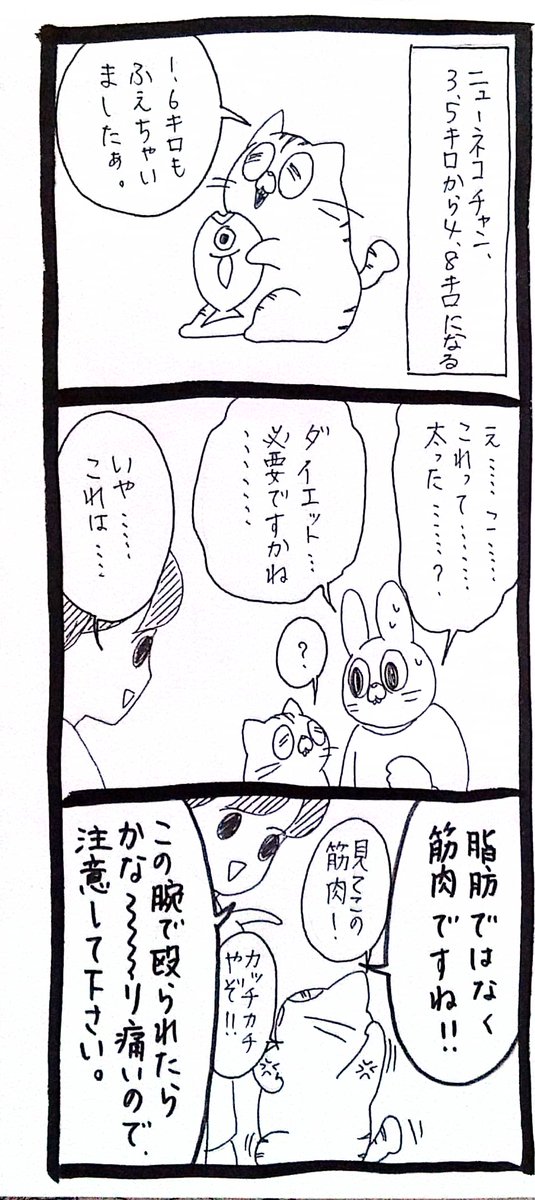 ニューネコチャン、
3.5キロから4.8キロになる
1.6キロも
ふえちゃい
ましたぁ。
え……つー……
これって………
太った………?
ダイエット…
必要ですかね
………
?
いや……
これは……
脂肪ではなく
筋肉ですね!!
見てこの
筋肉!
カッチカチ
やぞ!!
この腕で殴られたら
かな〜〜〜〜り痛いので、
注意して下さい。